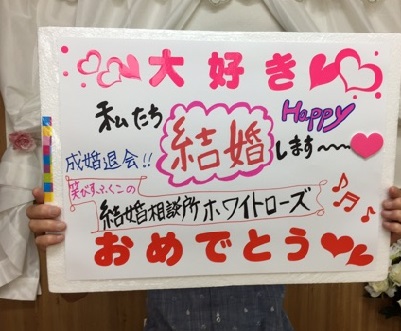 大好き
私たち 結婚 Happy
します〜〜
成婚退会!!
笑びすふくこの
結婚相談所ホワイトローズ
おめでとう